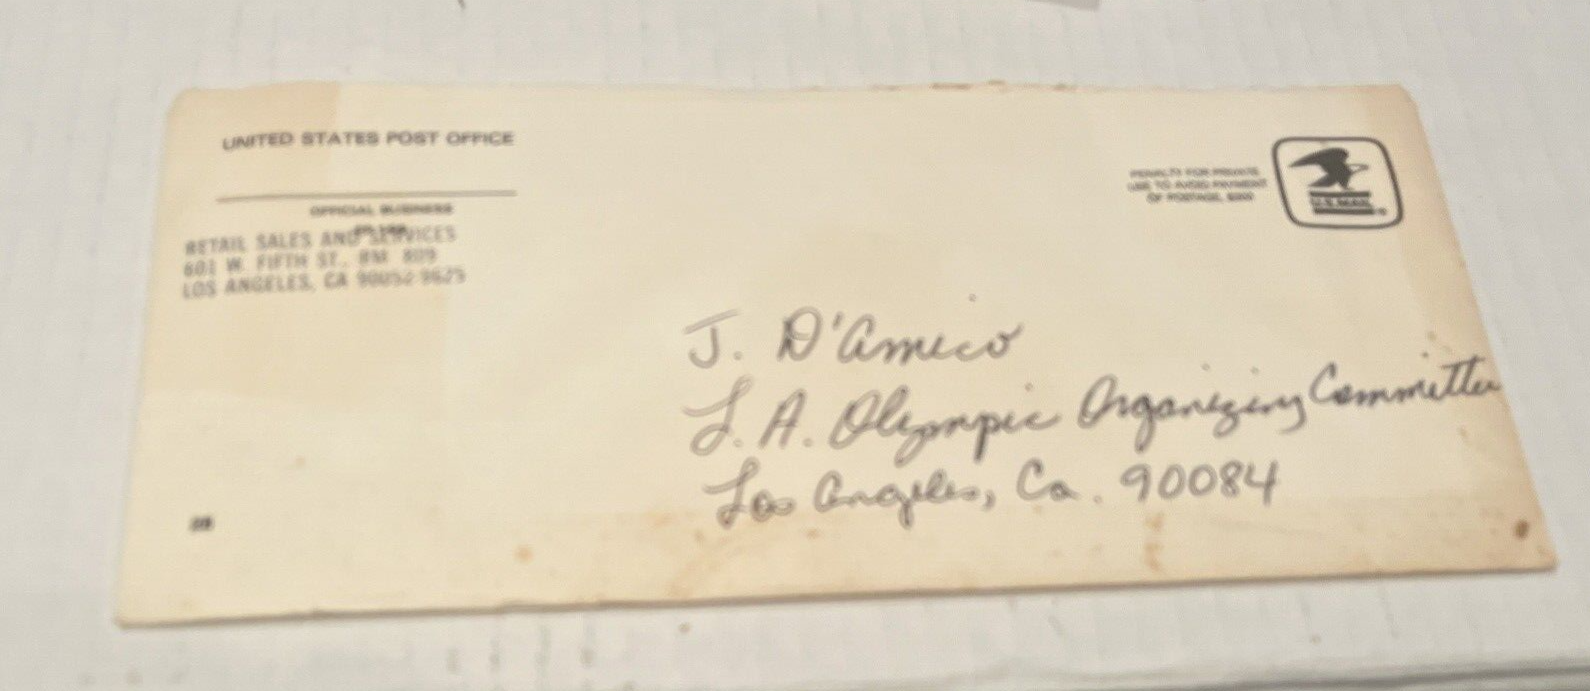 UNITED STATES POST OFFICE
OFFICIAL BUSINESS
RETAIL SALES AND SERVICES
601 W. FIFTH ST., RM 809
LOS ANGELES, CA 90052-9625
PENALTY FOR PRIVATE
USE TO AVOID PAYMENT
OF POSTAGE, $300
U.S.MAIL
J. D'Amico
L.A. Olympic Organizing Committee
Los Angeles, Ca. 90084